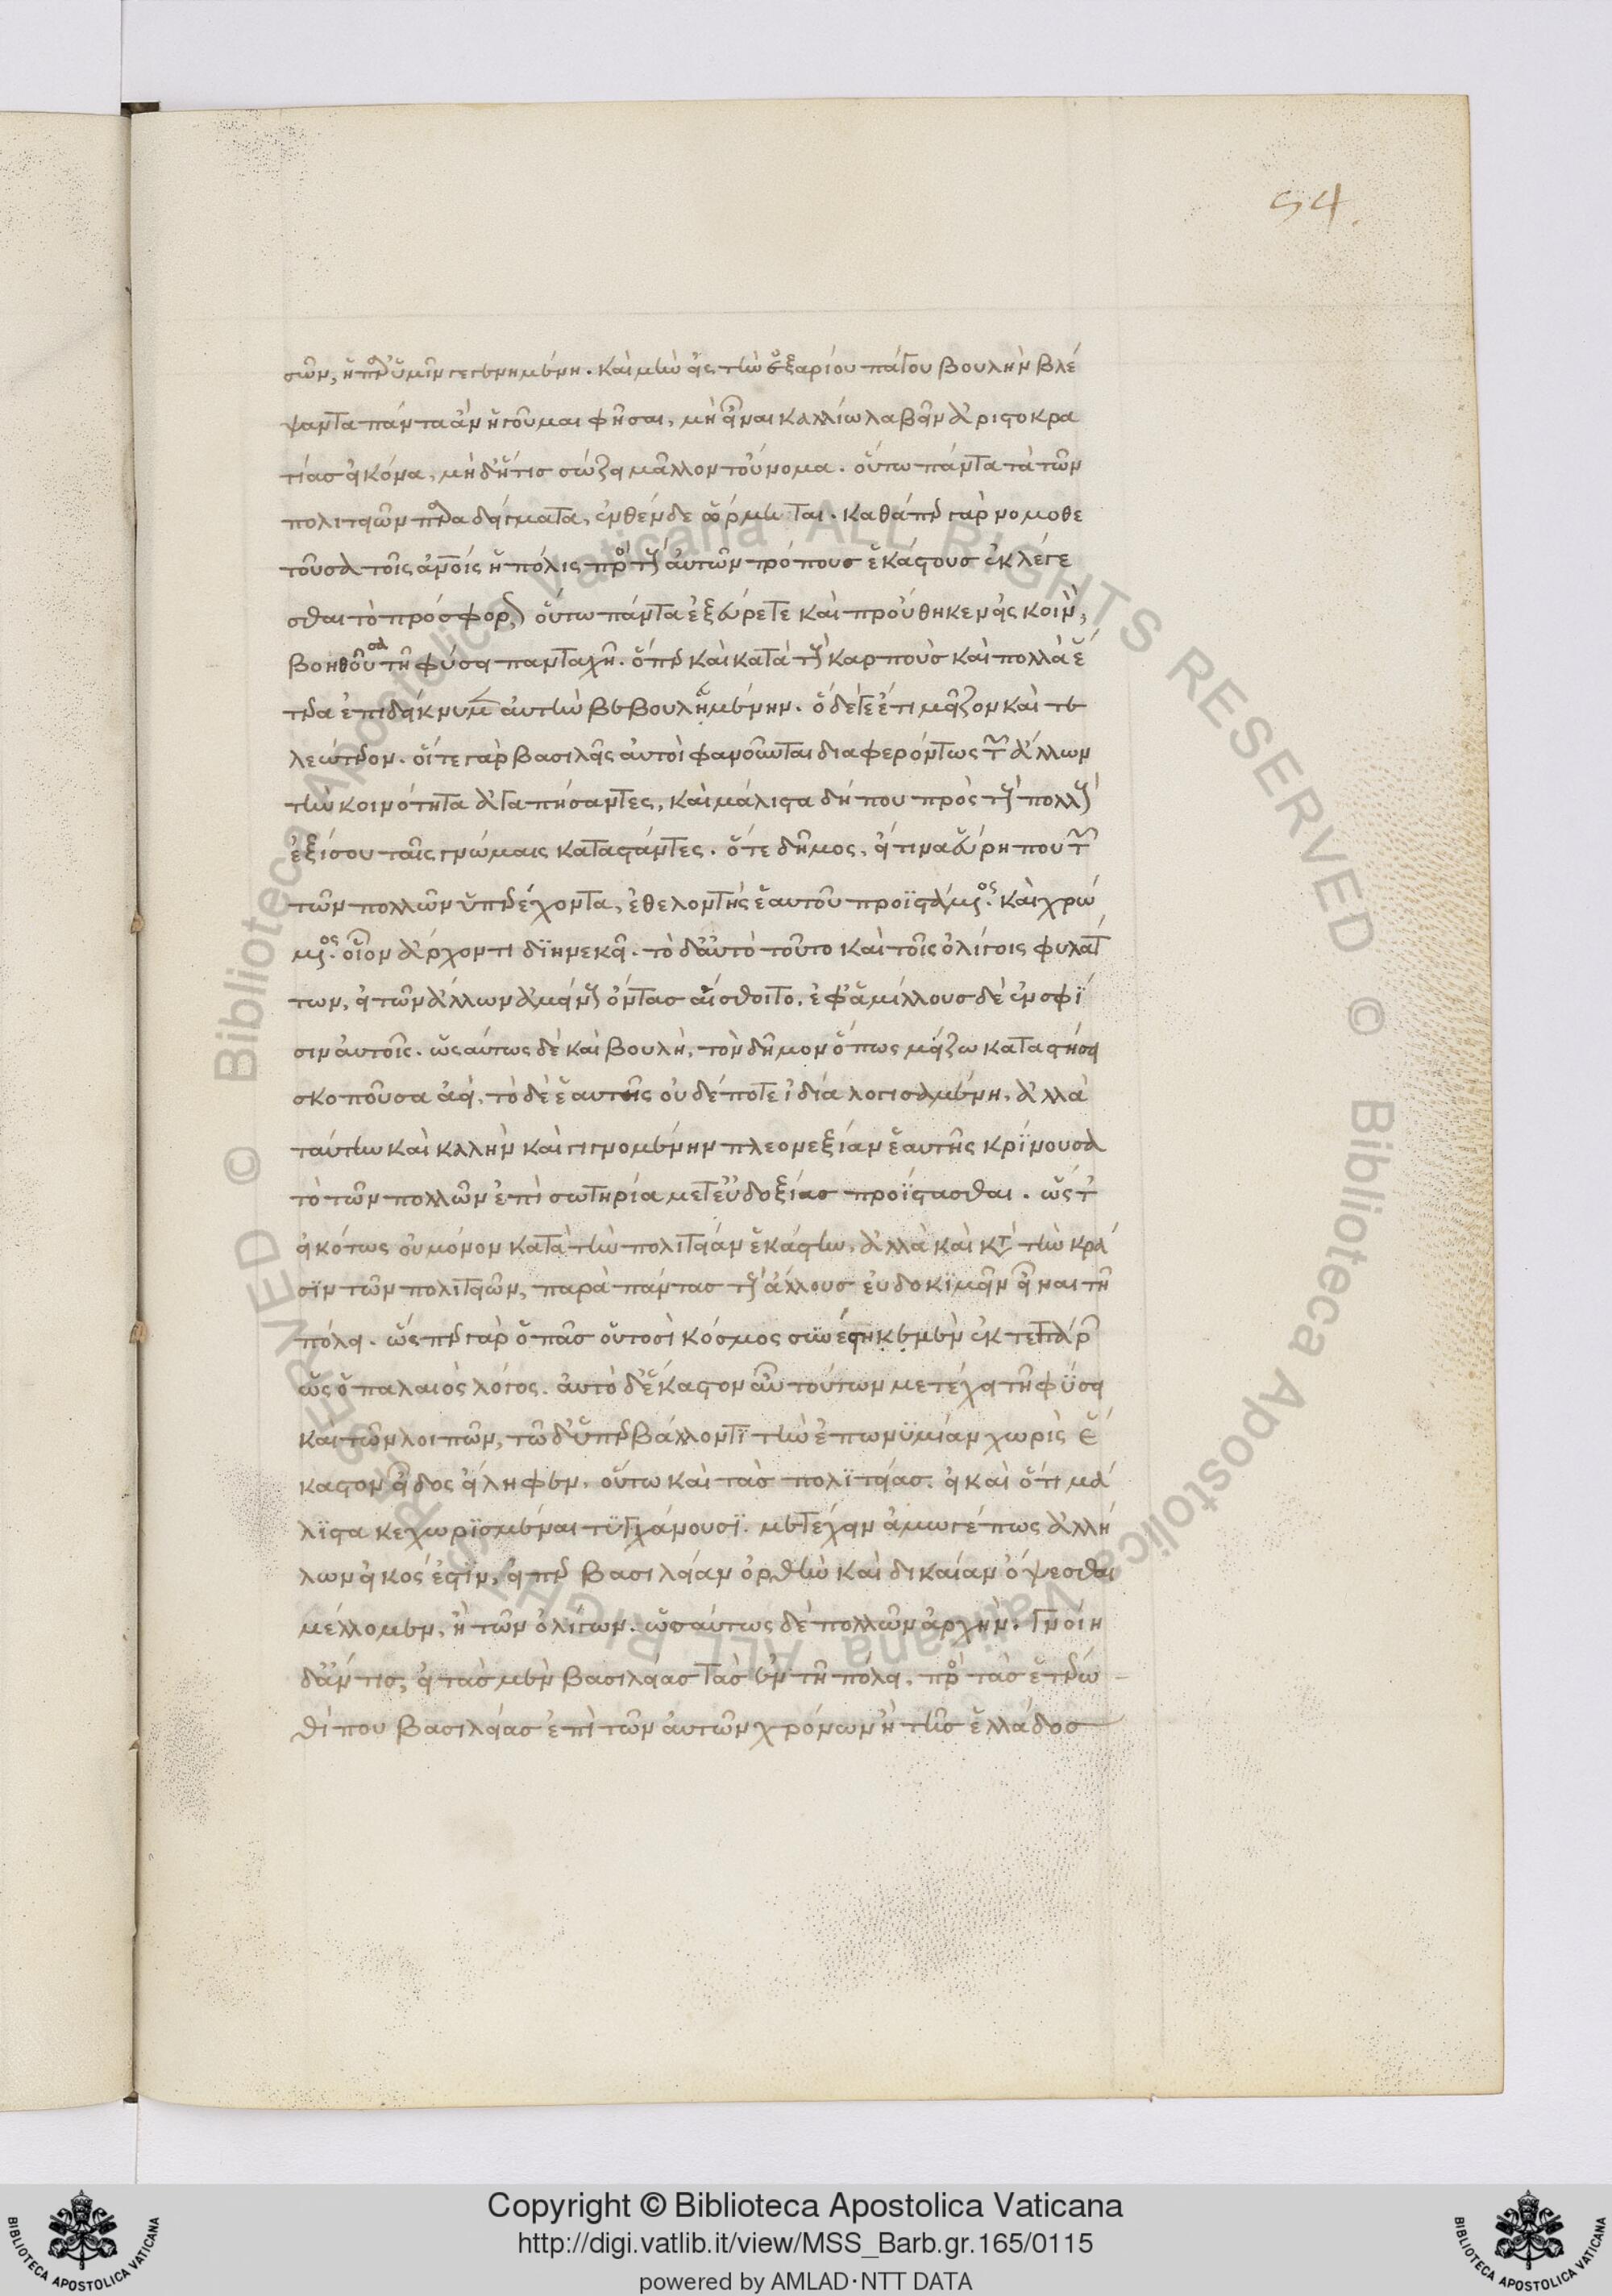 54.
σῶν, ἢ παρ' ὑμῖν γεγενημένη. καὶ μὴν εἰς τὴν ἐξ ἀρείου πάγου βουλὴν βλέ
ψαντα πάντα ἂν ἡγοῦμαι φῆσαι, μὴ εἶναι καλλίω λαβεῖν ἀριστοκρα
τίας εἰκόνα, μὴ δ' ἥτις σώζει μᾶλλον τοὔνομα. οὕτω πάντα τὰ τῶν
πολιτειῶν παραδείγματα, ἐνθένδε ὥρμηται. καθάπερ γὰρ νομοθε
τοῦσα τοῖς ἀνοις ἡ πόλις πρὸς τοὺς αὐτῶν τρόπους ἑκάστους ἐκλέγε
σθαι τὸ πρόσφορον, οὕτω πάντα ἐξεύρετε καὶ προὔθηκεν εἰς κοινὸν,
βοηθοῦσα τῇ φύσει πανταχῇ. ὅπερ καὶ κατὰ τοὺς καρποὺς καὶ πολλὰ ἕ
τερα ἐπιδείκνυμεν αὐτὴν βεβουλημένην. ὃ δέ γε ἔτι μεῖζον καὶ τε
λεώτερον. οἵ τε γὰρ βασιλεῖς αὐτοὶ φανοῦνται διαφερόντως τῶν ἄλλων
τὴν κοινότητα ἀγαπήσαντες, καὶ μάλιστα δή που πρὸς τοὺς πολλοὺς
ἐξίσου ταῖς γνώμαις καταστάντες. ὅ τε δῆμος, εἴ τινα εὕρῃ που τῶν
τῶν πολλῶν ὑπερέχοντα, ἐθελοντὴς ἑαυτοῦ προϊστάμενος. καὶ χρώ
μενος οἷον ἄρχοντι διηνεκεῖ. τὸ δ' αὐτὸ τοῦτο καὶ τοῖς ὀλίγοις φυλάτ
των, εἰ τῶν ἄλλων ἀμείνους ὄντας αἴσθοιτο, ἐφαμίλλους δὲ ἐν σφί
σιν αὐτοῖς. ὡσαύτως δὲ καὶ βουλὴ, τὸν δῆμον ὅπως μείζω καταστήσει
σκοποῦσα ἀεὶ, τὸ δὲ ἑαυτῆς οὐδέποτε ἰδία λογισαμένη, ἀλλὰ
ταύτην καὶ καλὴν καὶ γιγνομένην πλεονεξίαν ἑαυτῆς κρίνουσα
τὸ τῶν πολλῶν ἐπὶ σωτηρία μετ' εὐδοξίας προΐστασθαι. ὥστ'
εἰκότως οὐ μόνον κατὰ τὴν πολιτείαν ἑκάστην, ἀλλὰ καὶ κατὰ τὴν κρᾶ
σιν τῶν πολιτειῶν, παρὰ πάντας τοὺς ἄλλους εὐδοκιμεῖν εἶναι τῇ
πόλει. ὥσπερ γὰρ ὁ πᾶς οὑτοσὶ κόσμος συνέστηκε μὲν ἐκ τεττάρων
ὡς ὁ παλαιὸς λόγος. αὐτὸ δ' ἕκαστον αὖ τούτων μετέχει τῇ φύσει
καὶ τῶν λοιπῶν, τῶ δ' ὑπερβάλλοντι τὴν ἐπωνυμίαν χωρὶς ἕ
καστον εἶδος εἴληφεν, οὕτω καὶ τὰς πολιτείας. εἰ καὶ ὅτι μά
λιστα κεχωρισμέναι τυγχάνουσι. μετέχειν ἀμωγέπως ἀλλή
λων εἰκός ἐστιν, εἴπερ βασιλείαν ὀρθὴν καὶ δικαίαν ὄψεσθαι
μέλλομεν, ἢ τῶν ὀλίγων. ὡσαύτως δὲ πολλῶν ἀρχήν. γνοίη
δ' ἄν τις, εἰ τὰς μὲν βασιλείας τὰς ἐν τῇ πόλει, πρὸς τὰς ἑτέρω
θί που βασιλείας ἐπὶ τῶν αὐτῶν χρόνων ἢ τῆς ἑλλάδος
Copyright © Biblioteca Apostolica Vaticana
http://digi.vatlib.it/view/MSS_Barb.gr.165/0115
powered by AMLAD·NTT DATA